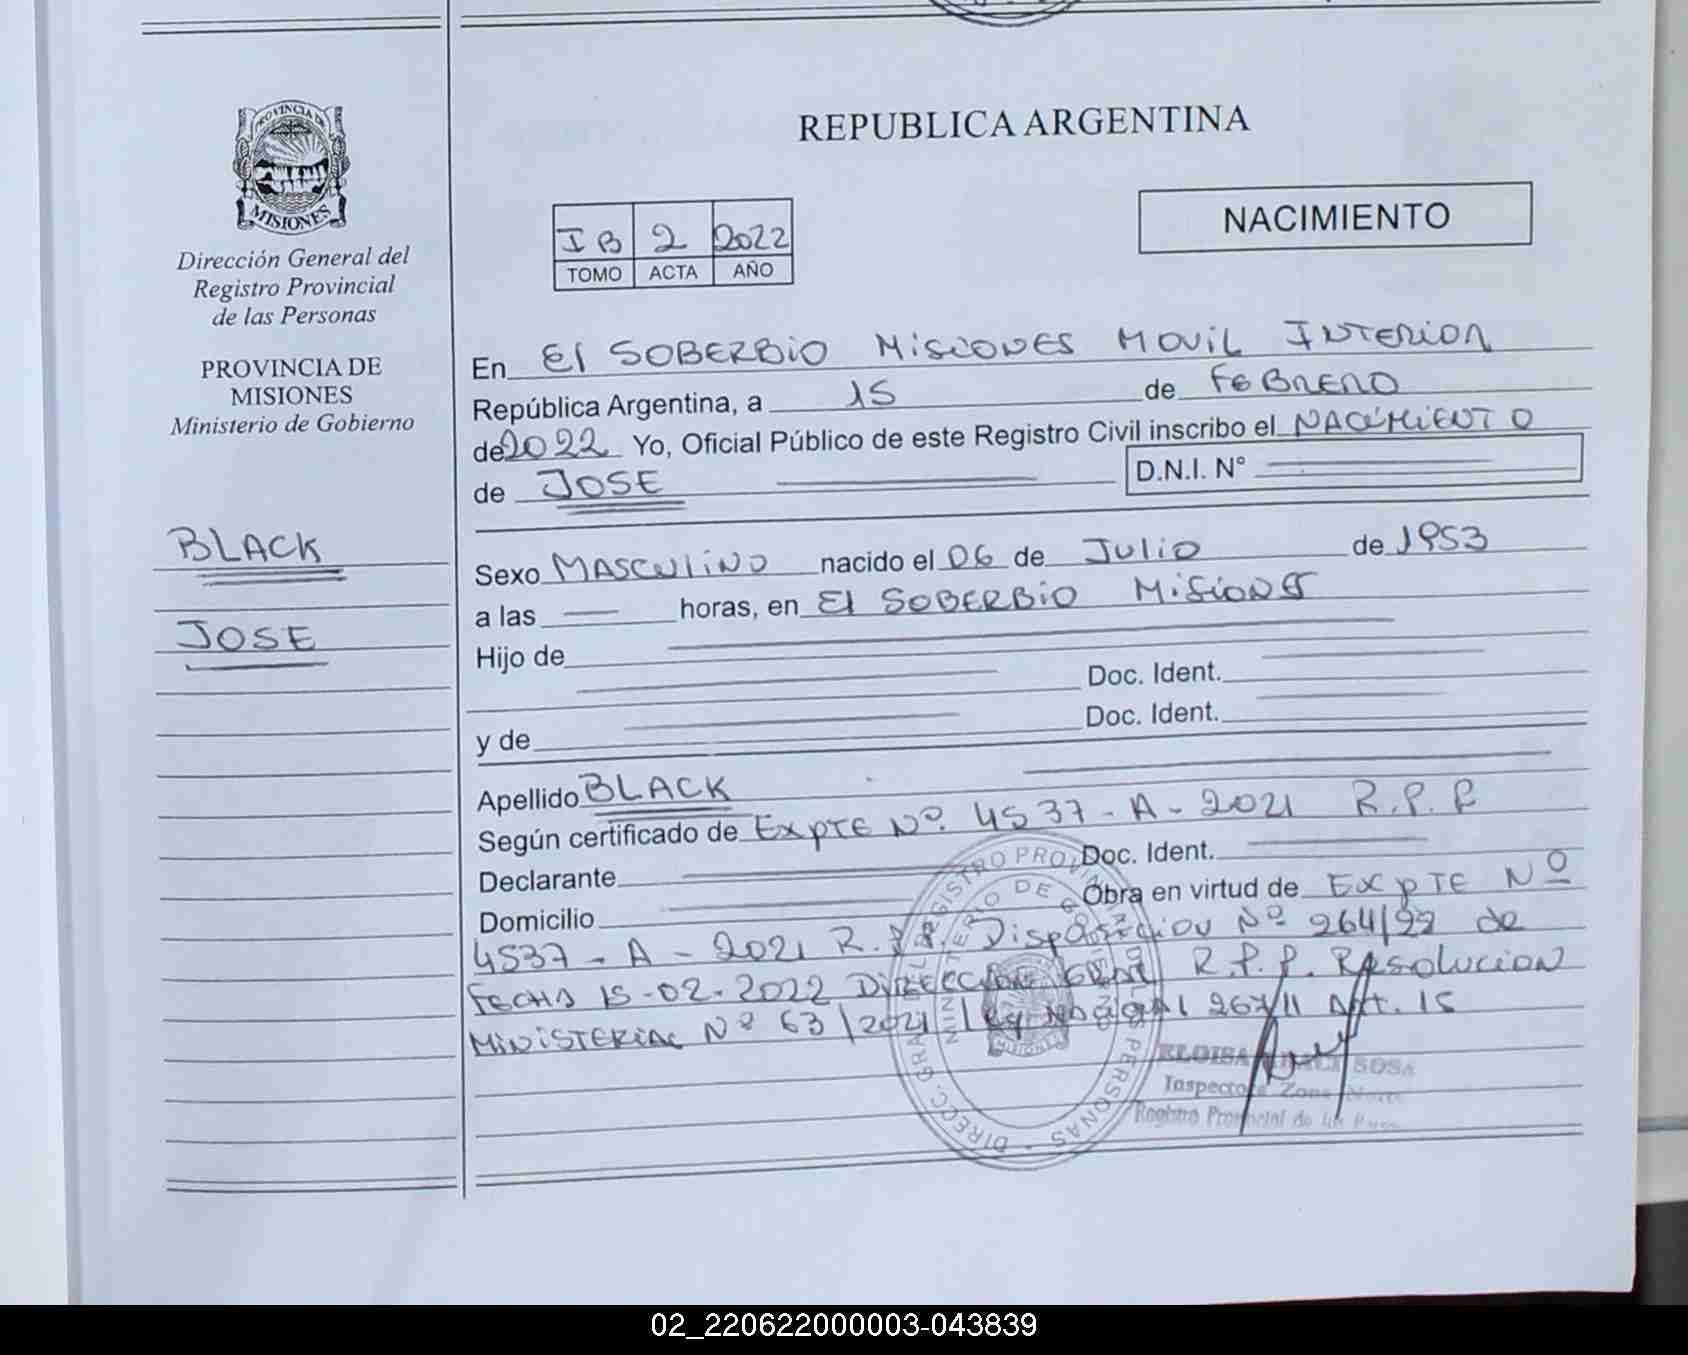 PROVINCIA DE
MISIONES
Dirección General del
Registro Provincial
de las Personas
PROVINCIA DE
MISIONES
Ministerio de Gobierno
BLACK
JOSE
REPUBLICA ARGENTINA
IB 2 2022
TOMO ACTA AÑO
NACIMIENTO
En El SOBERBIO MISIONES MOVIL INTERIOR
República Argentina, a 15 de FEBRERO
de 2022 Yo, Oficial Público de este Registro Civil inscribo el NACIMIENTO
de JOSE D.N.I. N°
Sexo MASCULINO nacido el 06 de Julio de 1953
a las horas, en El SOBERBIO MISIONES
Hijo de
Doc. Ident.
y de Doc. Ident.
Apellido BLACK
Según certificado de EXPTE Nº. 4537-A-2021 R.P.P
Declarante Doc. Ident.
Domicilio Obra en virtud de EXPTE Nº
4537-A-2021 R.P.P. Disposicion Nº 264/22 de
FECHA 15-02-2022 DIRECCION GRAL R.P.P. Resolucion
MINISTERIAL Nº 63/2021 Ley Nacional 26711 Art. 15
DIRECC. GRAL. DEL REGISTRO PROVINCIAL DE LAS PERSONAS
MINISTERIO DE GOBIERNO
MISIONES
ELOISA SOSA
Inspectora Zona Norte
Registro Provincial de las
02_220622000003-043839